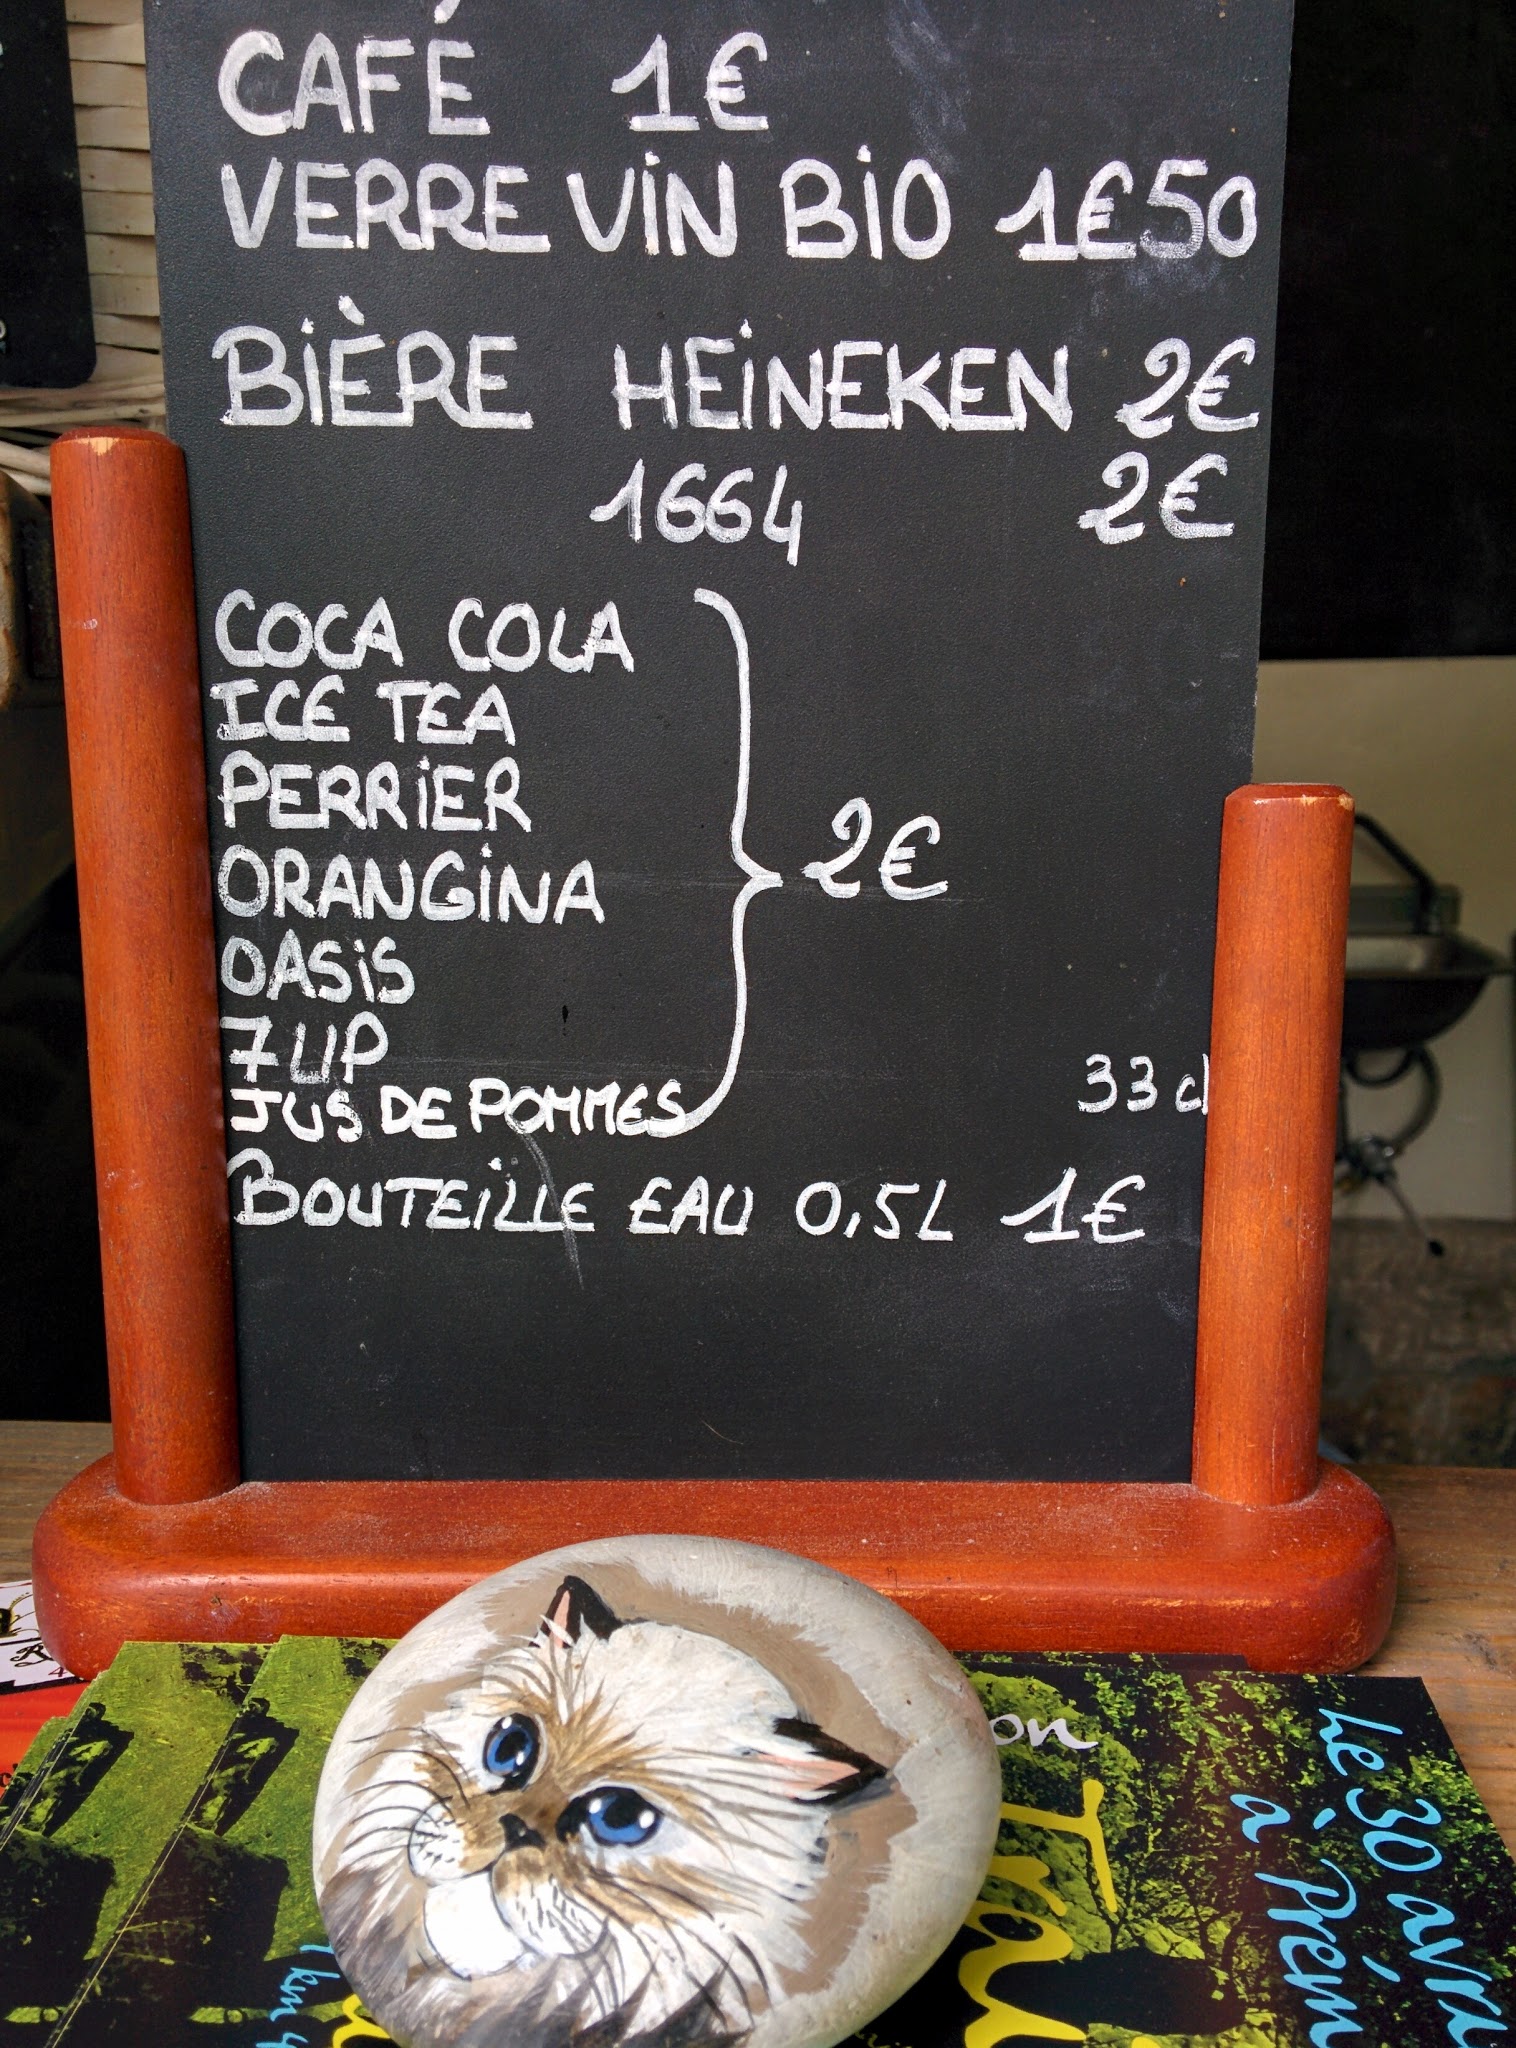 CAFÉ 1€
VERRE VIN BIO 1€50
BIÈRE HEINEKEN 2€
1664 2€
COCA COLA
ICE TEA
PERRIER
ORANGINA
OASIS
7UP
JUS DE POMMES
2€
33 cl
BOUTEILLE EAU 0,5L 1€
on
Le 30 avri
à Prém
Tra
km